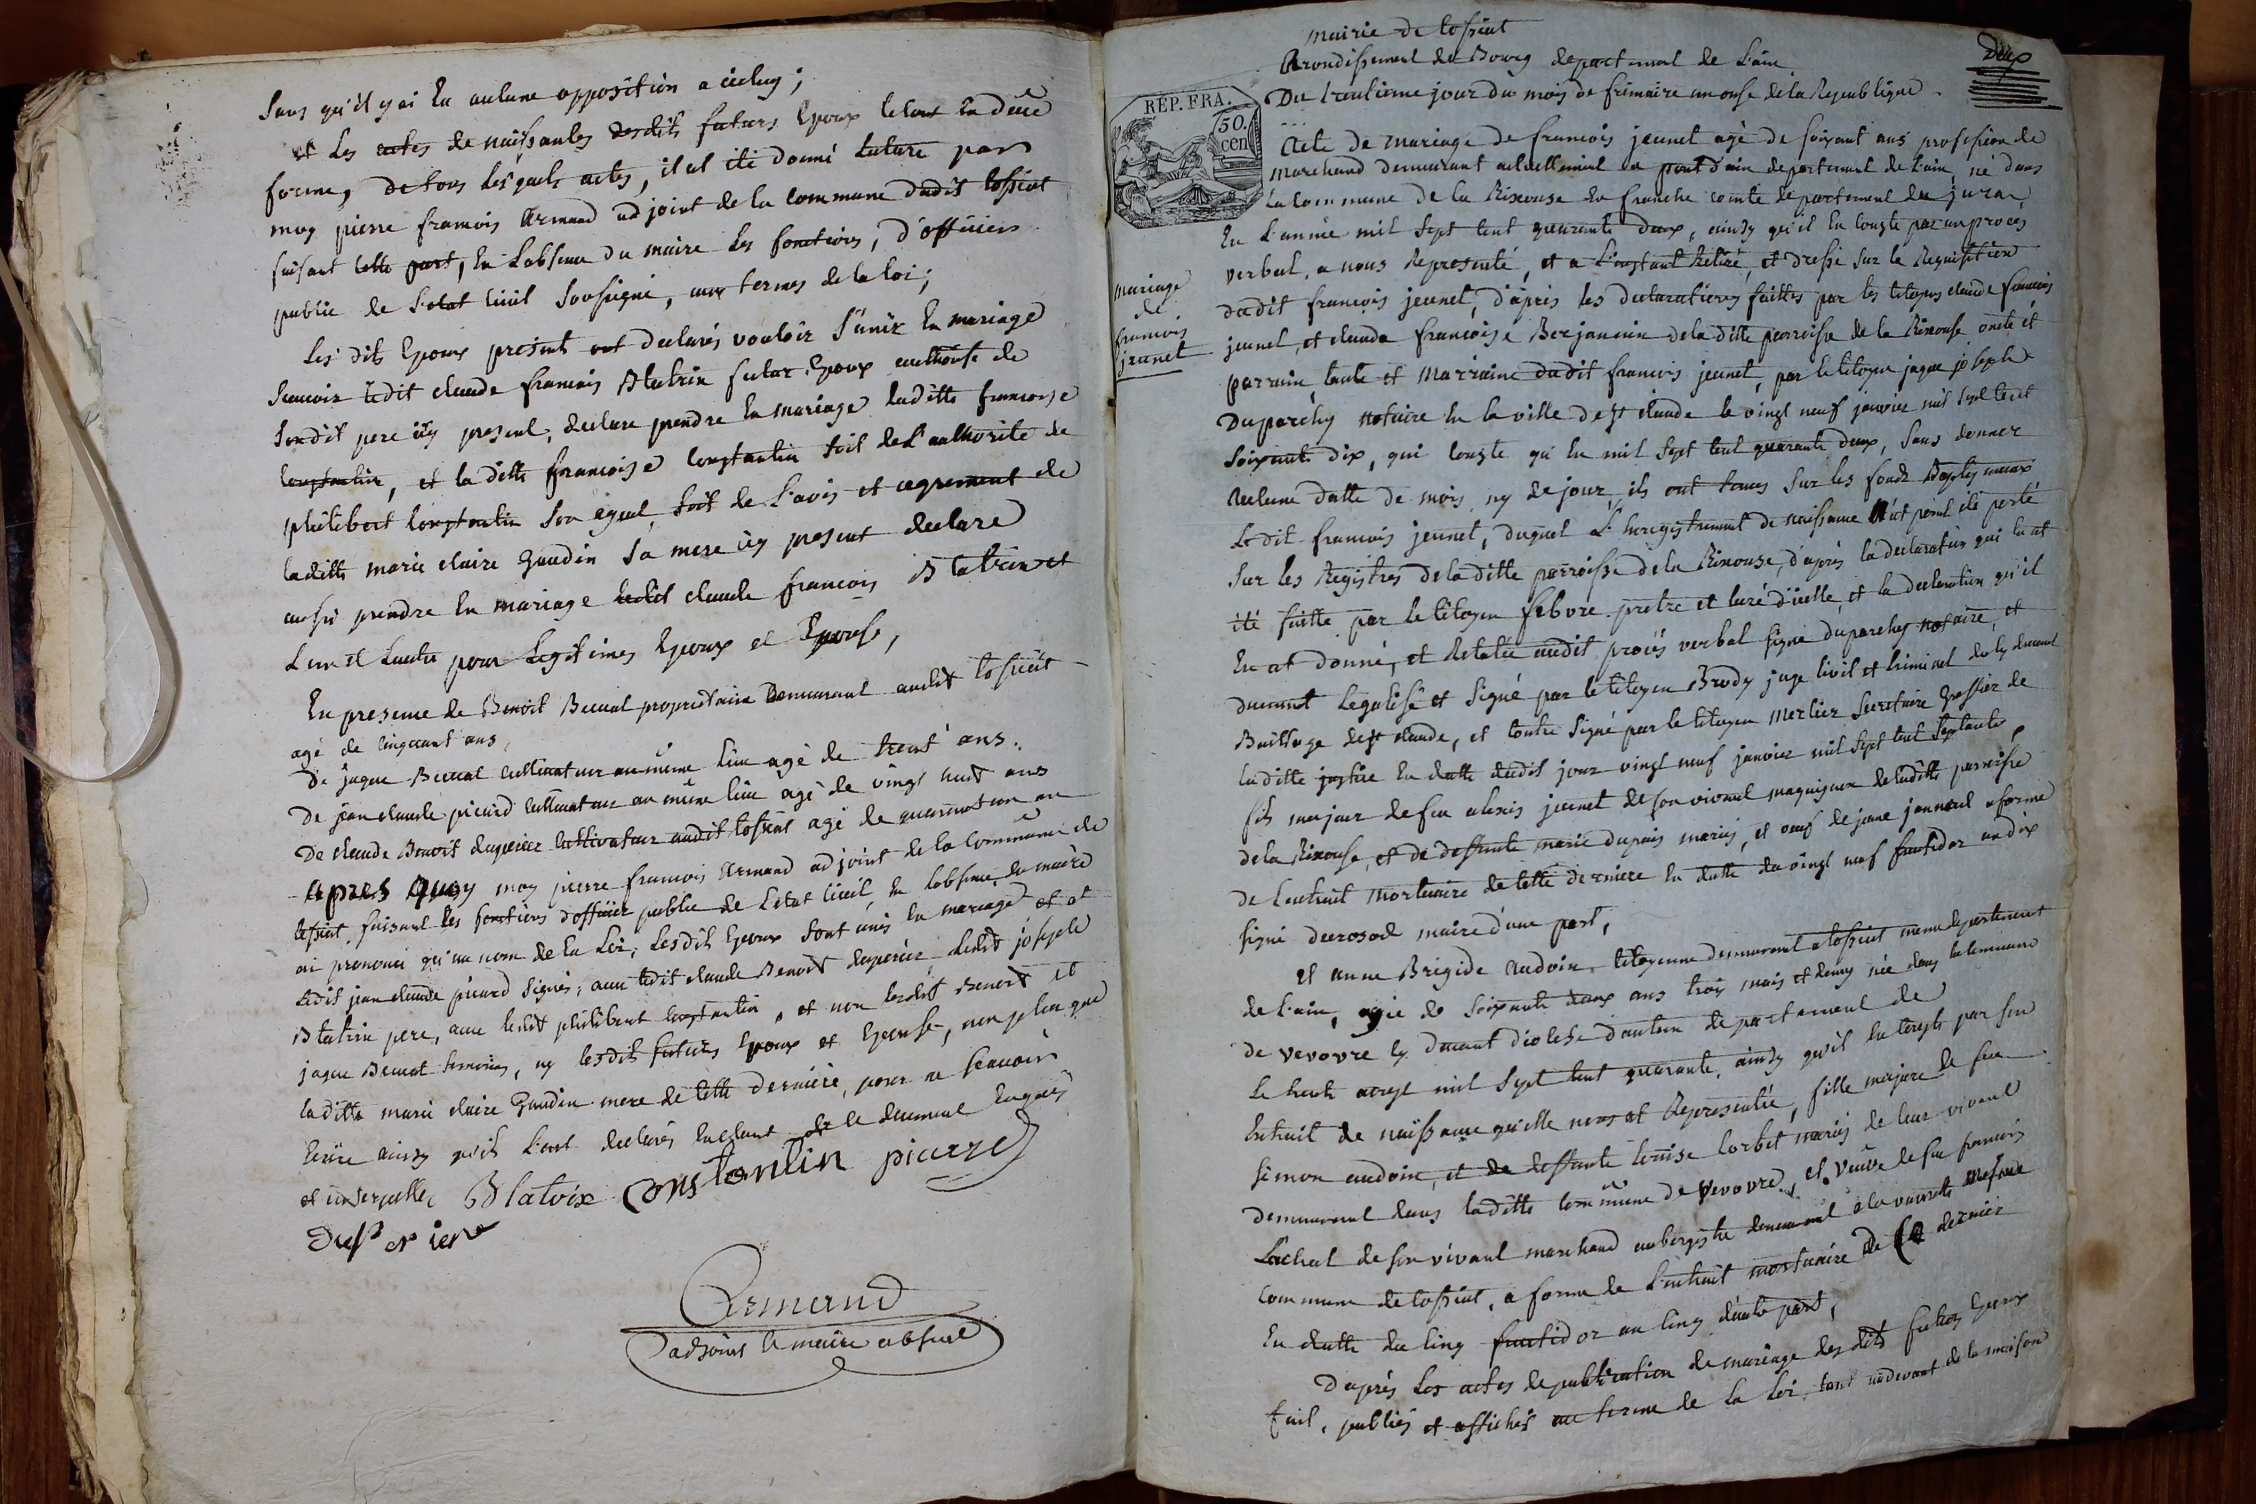 Sans qu'il y ai eu aulune opposition a iceluy;
et les actes de naissantes desdits futurs Epoux le tout en düe
forme, de tous lesquels actes, il at été donné luture par
moy pierre francois Armand adjoint de la commune dudit tossiat
faisant cette part, en l'absence du maire les fonctions, d'officier
public de l'etat civil soussigné, aux termes de la loi;
Les dits Epoux present ont declarés vouloir s'unir en mariage
scavoir ledit claude francois Blatrix futur Epoux authorisé de
sondit pere icy present, declare prendre en mariage laditte francoise
constantin, et la ditte francoise constantin soit de l'authorité de
philibert constantin son ayeul, soit de l'avis et agrement de
laditte marie claire Gaudin sa mere icy present declare
aussi prendre en mariage ledit claude francois Blatrix et
l'un et lautre pour legitimes Epoux et Epouse,
En presence de Benoit Buvat propriétaire demeurant audit tossiat
agé de cinquant ans,
De jaque Buvat cultivateur au même lieu agé de trent ans.
De jean claude picard cultivateur au même lieu agé de vingt huit ans
De claude Benoit duperier cultivateur audit tossiat agé de quarant un an
apres quoy moy pierre francois Armand adjoint de la commune de
tossiat, faisant les fonctions d'officier public de l'etat civil, en labsence du maire
ai prononcé qu'au nom de la loi, lesdits Epoux sont unis en mariage et at
ledit jean claude picard signés, avec ledit claude Benoit duperier ledit joseph
Blatrix pere, avec ledit philibert constantin, et non lesdits Benoit et
jaque Buvat temoins, ny lesdits futurs Epoux et Epouse, non plus que
laditte marie claire Gaudin mere de cette derniere, pour ne scavoir
ecrire ainsy qu'ils l'ont declarés enclant de ce duement enquis
et interpellés Blatrix constantin picard
Duperier
Armand
adjoint le maire absent
mairie de tossiat
Arrondissement de Bourg departement de l'ain
Deux
Du trentieme jour du mois de frimaire an onse de la Republique.
REP. FRA.
50.
cen
Acte de mariage de francois jeunet agé de soixant ans profession de
marchand demeurant actuellement au pont dain departement de l'ain, né dans
la commune de la Rixouse en franche comté departement du jura,
En l'année mil sept cent quarante deux, ainsy qu'il en conste par un proces
verbal, a nous Representé, et a l'instant Retiré, et dressé sur le Requisition
dudit francois jeunet, d'apres les declarations faittes par les citoyens claude francois
mariage
de
francois
jeunet
jeunet, et claude francoise Berjannin de la ditte parroisse de la Rixouse oncle et
parrain, tante et marraine dudit francois jeunet, par le citoyen jaque joseph
Duparchy notaire en la ville de st claude le vingt neuf janvier mil sept cent
soixante dix, qui conste qu'en mil sept cent quarante deux, sans donner
aucune datte de mois, ny de jour, ils ont tenus sur les fonds Baptismaux
Le dit francois jeunet, duquel l'enregistrement de naissance n'at point été porté
sur les Registres de la ditte parroisse de la Rixouse, d'après la declaration qui en at
été faitte par le citoyen febvre pretre et curé d'icelle, et la declaration qu'il
En at donné, et Relatée audit procés verbal signé duparchy notaire, et
duement légalisé et signé par le citoyen Brody juge civil et criminel du cy devant
Baillage de st claude, et contre signé par le citoyen mercier secretaire Greffier de
laditte justice en datte dudit jour vingt neuf janvier mil sept cent septante,
fils majeur de feu alexis jeunet de son vivant maquignon de laditte parroisse
de la Rixouse, et de deffunte marie dupuis mariés, et veuf de jane janneaud a forme
de l'extrait mortuaire de cette derniere en datte du vingt neuf fructidor an dix
signé decrosod maire d'une part,
Et anne Brigide audoin citoyenne demeurant a tossiat meme departement
de l'ain, agée de soixante deux ans trois mois et demy née dans la commune
de vevovre cy devant diocese d'autun departement de
Le huit aoust mil sept cent quarante, ainsy qu'il en conste par son
Extrait de naissance qu'elle nous at Representée, fille majeure de feu
simon audoin, et de deffunte louise corbet mariés de leur vivant
demeurant dans laditte commune de vevovre, et veuve de feu francois
Lachat de son vivant marchand aubergiste demeurant a la vavrette mesme
commune de tossiat, a forme de l'extrait mortuaire de ce dernier
En datte du cinq fructidor an cinq d'autre part,
D'aprés les actes de publication de mariage des dits futurs Epoux
fait, publiés et affichés au terme de la loi, tant audevant de la maison